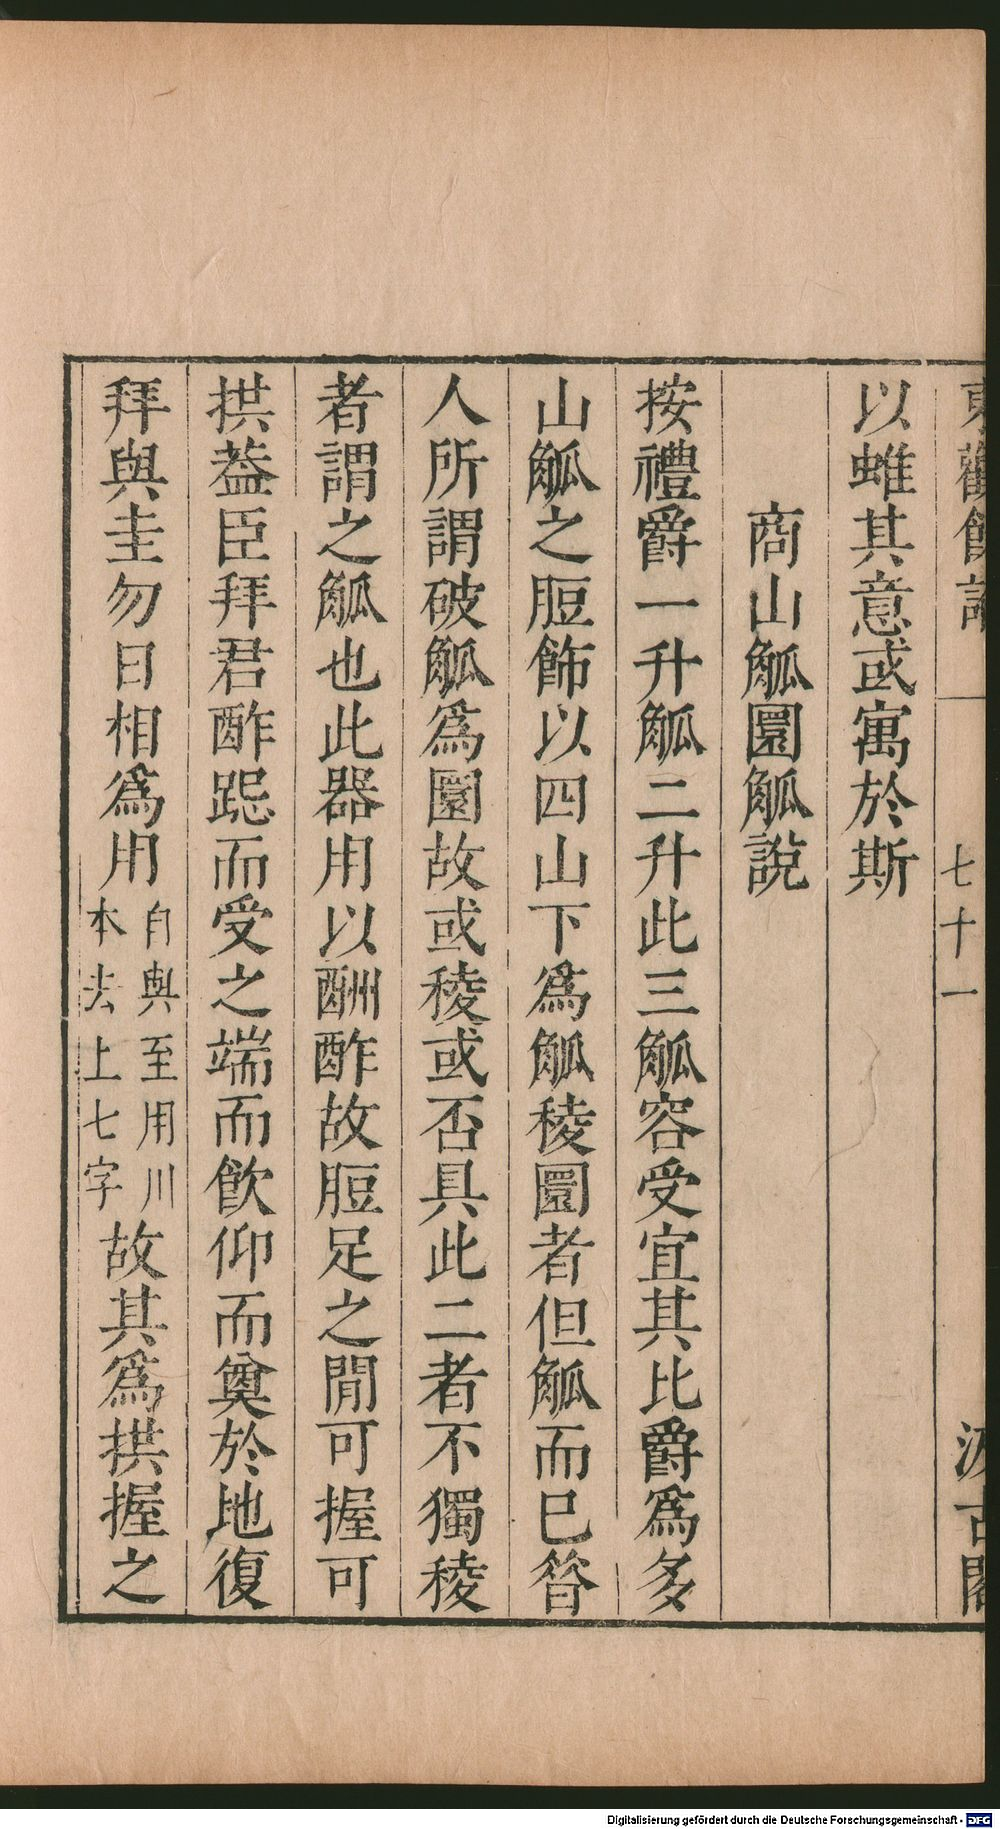 東觀餘論
七十一
汲古閣
以蜼其意或寓於斯
商山觚圜觚說
按禮爵一升觚二升此三觚容受宜其比爵爲多
山觚之脰飾以四山下爲觚稜圜者但觚而已昝
人所謂破觚爲圜故或稜或否具此二者不獨稜
者謂之觚也此器用以酬酢故脰足之閒可握可
拱葢臣拜君酢跽而受之端而飲仰而奠於地復
拜與圭勿日相爲用
自與至用川
本去上七字
故其爲拱握之
Digitalisierung gefördert durch die Deutsche Forschungsgemeinschaft - DFG